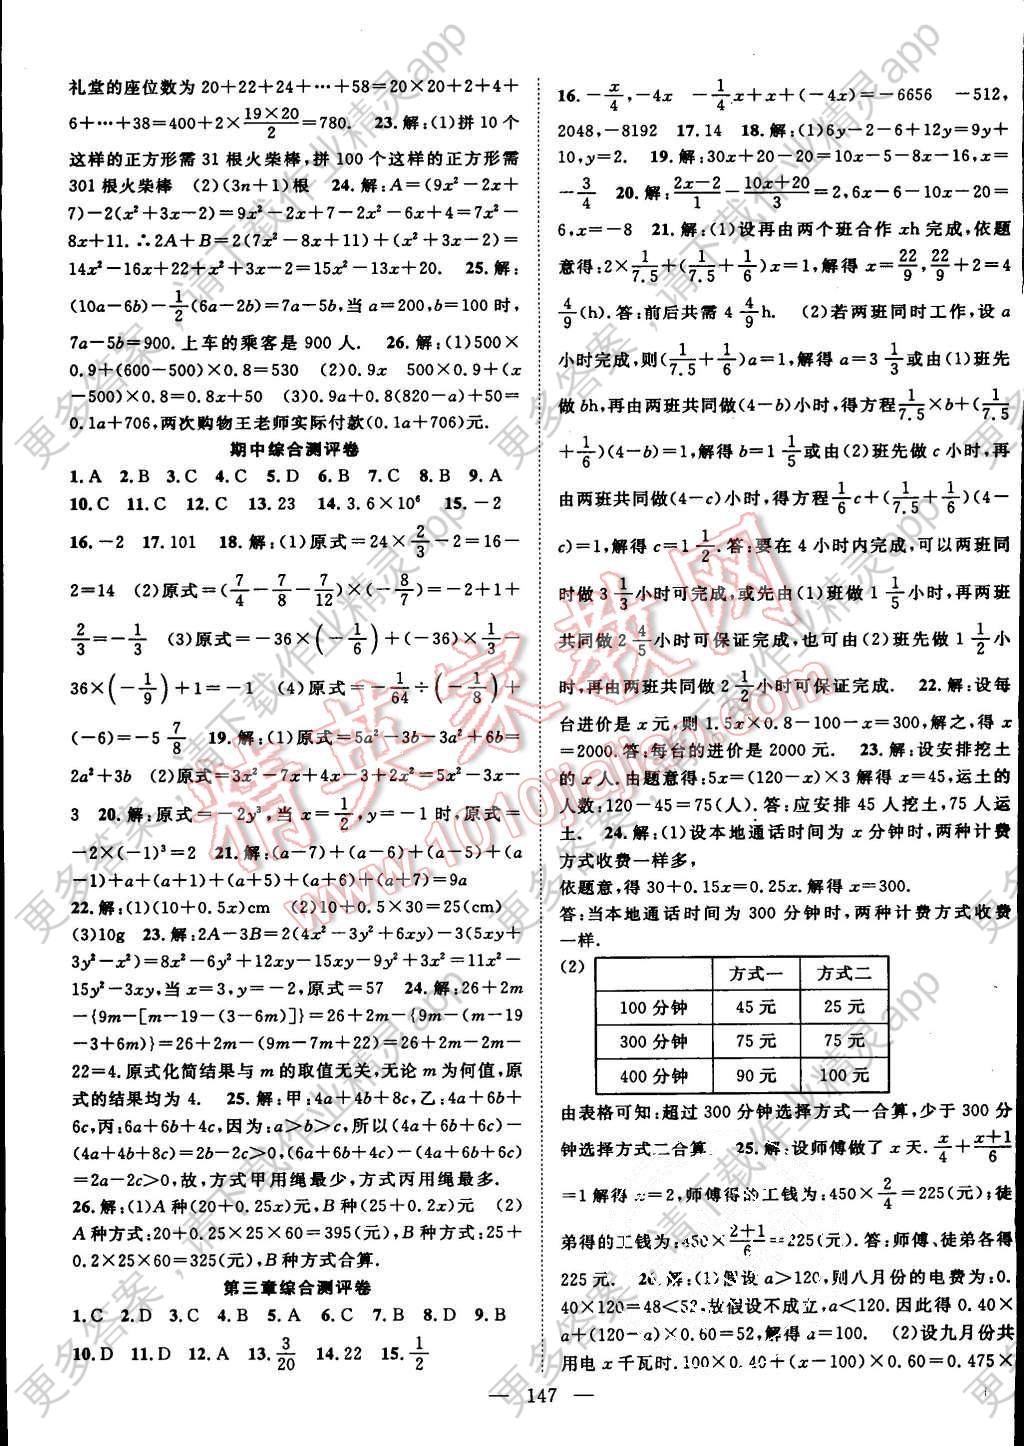 礼堂的座位数为 20+22+24+…+58=20×20+2+4+
6+…+38=400+2×19×20/2=780. 23.解:(1)拼10个
这样的正方形需31根火柴棒,拼100个这样的正方形需
301根火柴棒 (2)(3n+1)根 24.解:A=(9x²-2x+
7)-2(x²+3x-2)=9x²-2x+7-2x²-6x+4=7x²-
8x+11.∴2A+B=2(7x²-8x+11)+(x²+3x-2)=
14x²-16x+22+x²+3x-2=15x²-13x+20. 25.解:
(10a-6b)-1/2(6a-2b)=7a-5b,当a=200,b=100时,
7a-5b=900.上车的乘客是900人. 26.解:(1)500×
0.9+(600-500)×0.8=530 (2)0.9x 500×0.9+(x
-500)×0.8=0.8x+50 (3)0.9a+0.8(820-a)+50=
0.1a+706,两次购物王老师实际付款(0.1a+706)元.
期中综合测评卷
1.A 2.B 3.C 4.C 5.D 6.B 7.C 8.B 9.A
10.C 11.C 12.C 13.23 14.3.6×10⁶ 15.-2
16.-2 17.101 18.解:(1)原式=24×2/3-2=16-
2=14 (2)原式=(7/4-7/8-7/12)×(-8/7)=-2+1+
2/3=-1/3 (3)原式=-36×(-1/6)+(-36)×1/3-
36×(-1/9)+1=-1 (4)原式=-1/64÷(-1/8)+
(-6)=-5 7/8 19.解:(1)原式=5a²-3b-3a²+6b=
2a²+3b (2)原式=3x²-7x+4x-3+2x²=5x²-3x-
3 20.解:原式=-2y³,当x=1/2,y=-1时,原式=
-2×(-1)³=2 21.解:(a-7)+(a-6)+(a-5)+(a
-1)+a+(a+1)+(a+5)+(a+6)+(a+7)=9a
22.解:(1)(10+0.5x)cm (2)10+0.5×30=25(cm)
(3)10g 23.解:2A-3B=2(4x²-3y²+6xy)-3(5xy+
3y²-x²)=8x²-6y²+12xy-15xy-9y²+3x²=11x²-
15y²-3xy,当x=3,y=-2,原式=57 24.解:26+2m
-{9m-[m-19-(3-6m)]}=26+2m-{9m-(m-19
-3+6m)}=26+2m-(9m-7m+22)=26+2m-2m-
22=4.原式化简结果与m的取值无关,无论m为何值,原
式的结果均为4. 25.解:甲:4a+4b+8c,乙:4a+6b+
6c,丙:6a+6b+4c,因为:a>b>c,所以(4a+6b+6c)-
(4a+4b+8c)=2b-2c>0,(6a+6b+4c)-(4a+6b+6c)
=2a-2c>0,故,方式甲用绳最少,方式丙用绳最多.
26.解:(1)A种(20+0.25x)元,B种(25+0.2x)元 (2)
A种方式:20+0.25×25×60=395(元),B种方式:25+
0.2×25×60=325(元),B种方式合算.
第三章综合测评卷
1.C 2.D 3.D 4.B 5.A 6.C 7.D 8.D 9.B
10.D 11.D 12.A 13.3/20 14.22 15.1/2
16.-x/4,-4x -1/4x+x+(-4x)=-6656 -512,
2048,-8192 17.14 18.解:(1)6y-2-6+12y=9y+
10,y=2. 19.解:30x+20-20=10x-5-8x-16,x=
-3/4 20.解:2x-2/1-10x+20/3=2,6x-6-10x-20=
6,x=-8 21.解:(1)设再由两个班合作xh完成,依题
意得:2×1/7.5+(1/7.5+1/6)x=1,解得x=22/9,22/9+2=4
4/9(h).答:前后共需4 4/9h. (2)若两班同时工作,设a
小时完成,则(1/7.5+1/6)a=1,解得a=3 1/3或由(1)班先
做bh,再由两班共同做(4-b)小时,得方程1/7.5×b+(1/7.5
+1/6)(4-b)=1,解得b=1 1/5或由(2)班先做c小时,再
由两班共同做(4-c)小时,得方程1/6c+(1/7.5+1/6)(4-
c)=1,解得c=1 1/2.答:要在4小时内完成,可以两班同
时做3 1/3小时可完成,或先由(1)班做1 1/5小时,再两班
共同做2 4/5小时可保证完成,也可由(2)班先做1 1/2小
时,再由两班共同做2 1/2小时可保证完成. 22.解:设每
台进价是x元,则1.5x×0.8-100-x=300,解之,得x
=2000.答:每台的进价是2000元. 23.解:设安排挖土
的x人.由题意得:5x=(120-x)×3解得x=45,运土的
人数:120-45=75(人).答:应安排45人挖土,75人运
土. 24.解:(1)设本地通话时间为x分钟时,两种计费
方式收费一样多,
依题意,得30+0.15x=0.25x.解得x=300.
答:当本地通话时间为300分钟时,两种计费方式收费
一样.
(2)
方式一 方式二
100分钟 45元 25元
300分钟 75元 75元
400分钟 90元 100元
由表格可知:超过300分钟选择方式一合算,少于300分
钟选择方式二合算 25.解:设师傅做了x天.x/4+x+1/6
=1解得x=2,师傅得的工钱为:450×2/4=225(元);徒
弟得的工钱为:450×2+1/6=225(元).答:师傅、徒弟各得
225元. 26.解:(1)假设a>120,则八月份的电费为:0.
40×120=48<52,故假设不成立,a<120.因此得0.40×
a+(120-a)×0.60=52,解得a=100. (2)设九月份共
用电x千瓦时.100×0.40+(x-100)×0.60=0.475×
— 147 —
精英家教网
www.1010jiajiao.com
更多答案,请下载作业精灵app